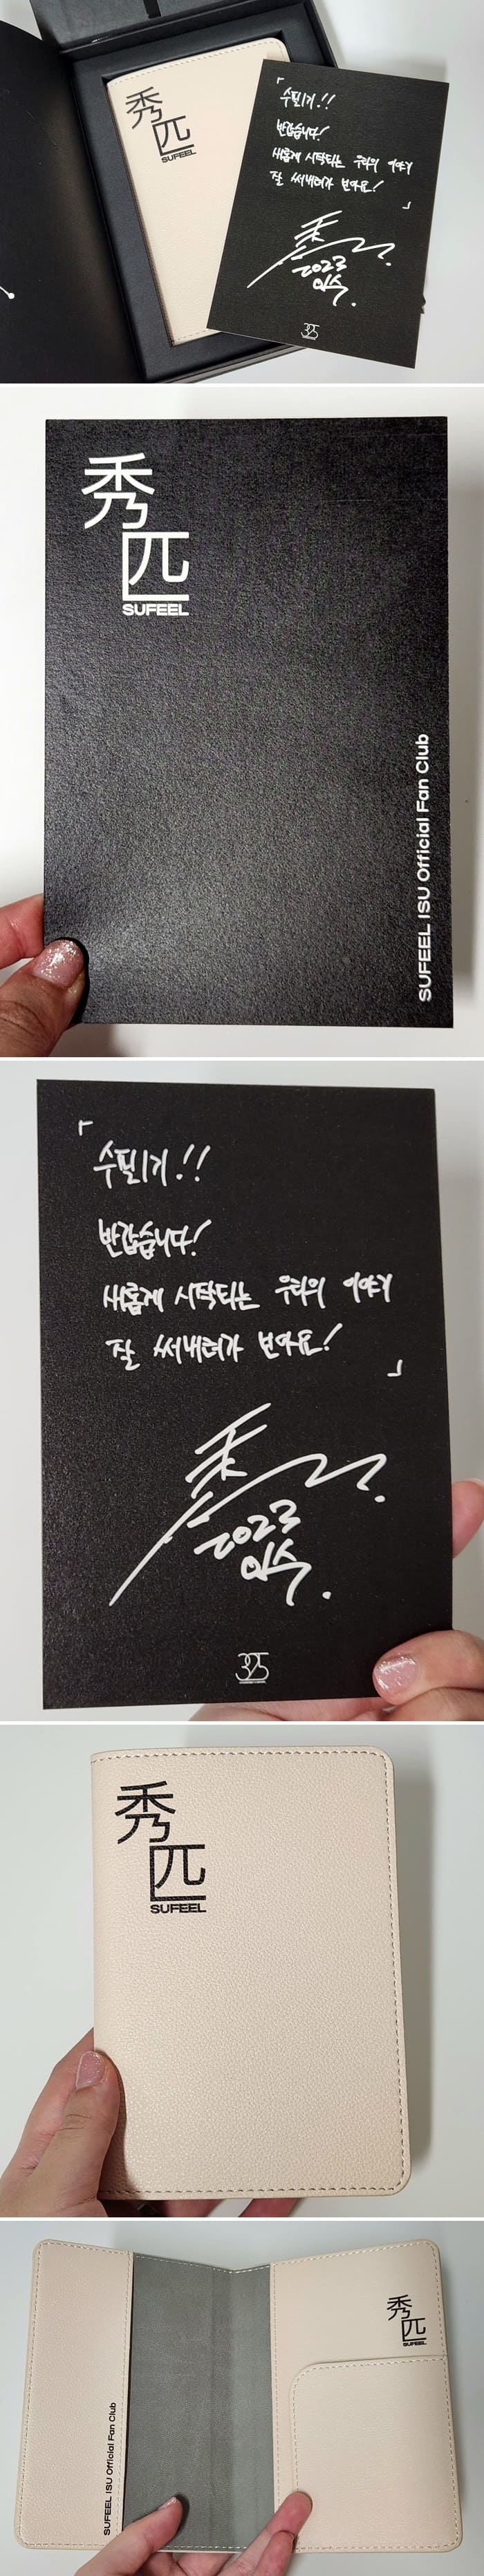 秀
匹
SUFEEL
「
수필1기!!
반갑습니다!
새롭게 시작되는 우리의 이야기
잘 써내려가 보아요!
」
2023
이수.
325
秀
匹
SUFEEL
SUFEEL ISU Official Fan Club
「
수필1기!!
반갑습니다!
새롭게 시작되는 우리의 이야기
잘 써내려가 보아요!
」
2023
이수.
325
秀
匹
SUFEEL
秀
匹
SUFEEL
SUFEEL ISU Official Fan Club